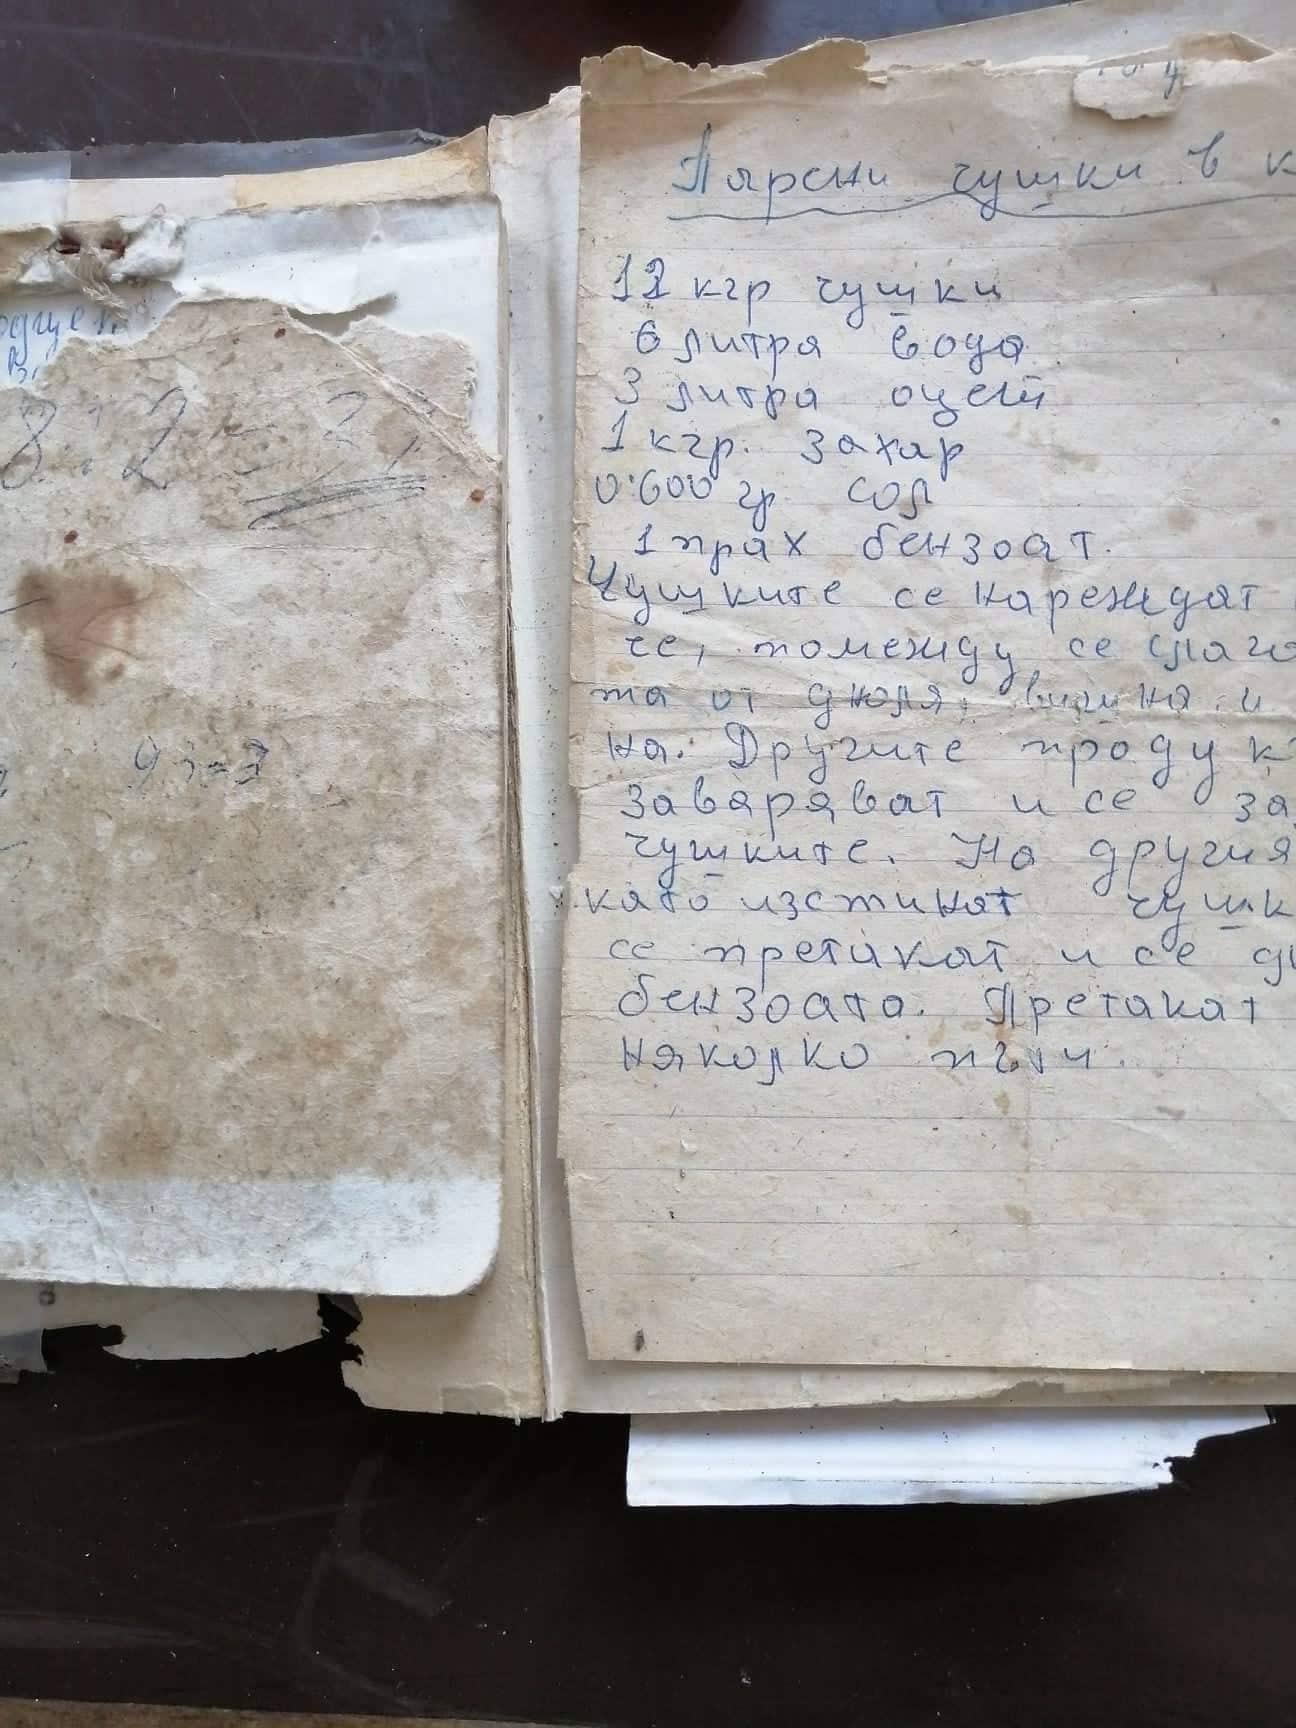 8:2=
9:=3
Парени чушки в к
12 кгр чушки
6 литра вода
3 литра оцет
1 кгр. захар
0.600 гр. сол
1 прах бензоат.
Чушките се нареждат
че, помежду се слага
та от дюля, вишня и
на. Другите продук
заваряват и се за
чушките. На другия
като изстинат чушк
се претакат и се
бензоата. Претакат
няколко пъти.